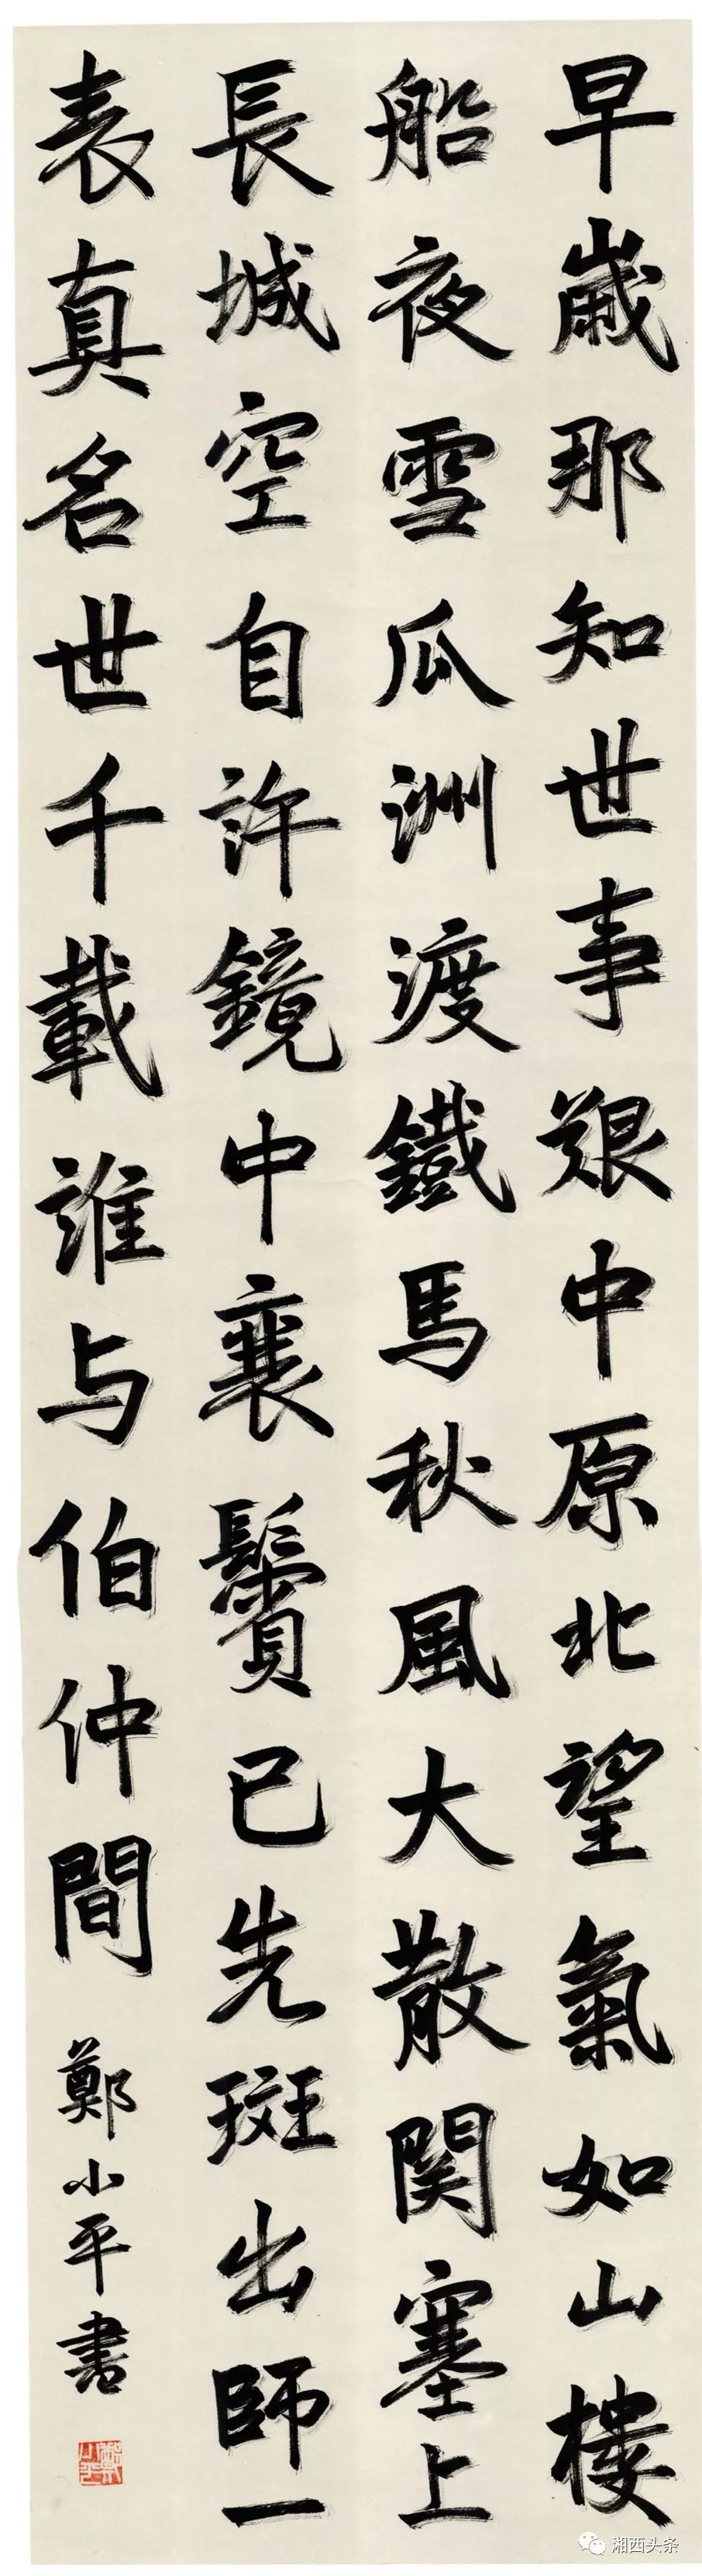 早歲那知世事艱中原北望氣如山樓
船夜雪瓜洲渡鐵馬秋風大散関塞上
長城空自許鏡中衰鬢已先斑出師一
表真名世千載誰与伯仲間
鄭小平書
湘西头条